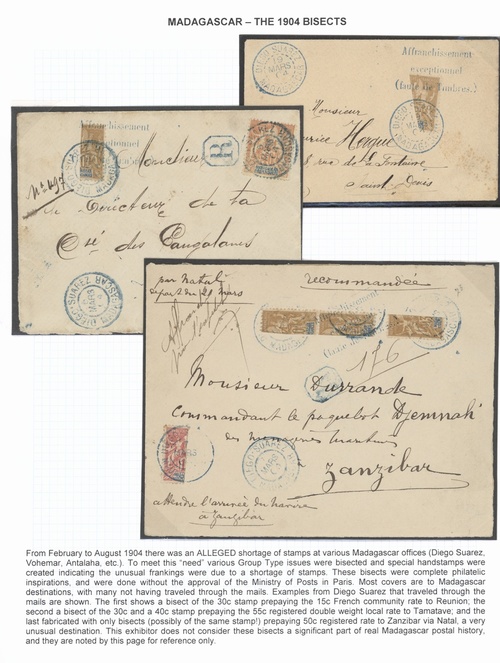 MADAGASCAR – THE 1904 BISECTS
Affranchissement
exceptionnel
(faute de Timbres.)
Monsieur
Hergue
rue de la Fontaine
Saint Denis
Affranchissement
R
Monsieur
No 497
le Directeur de la
Cie des Pangalanes
DIEGO-SUAREZ
MARS
par Natal
départ du 21 Mars
recommandée
176
Monsieur Durrande
Commandant le paquebot Djemnah
des messageries maritimes
Zanzibar
DIEGO-SUAREZ
MARS
attendre l'arrivée du navire
à Zanzibar
From February to August 1904 there was an ALLEGED shortage of stamps at various Madagascar offices (Diego Suarez,
Vohemar, Antalaha, etc.). To meet this “need” various Group Type issues were bisected and special handstamps were
created indicating the unusual frankings were due to a shortage of stamps. These bisects were complete philatelic
inspirations, and were done without the approval of the Ministry of Posts in Paris. Most covers are to Madagascar
destinations, with many not having traveled through the mails. Examples from Diego Suarez that traveled through the
mails are shown. The first shows a bisect of the 30c stamp prepaying the 15c French community rate to Reunion; the
second a bisect of the 30c and a 40c stamp prepaying the 55c registered double weight local rate to Tamatave; and the
last fabricated with only bisects (possibly of the same stamp!) prepaying 50c registered rate to Zanzibar via Natal, a very
unusual destination. This exhibitor does not consider these bisects a significant part of real Madagascar postal history,
and they are noted by this page for reference only.